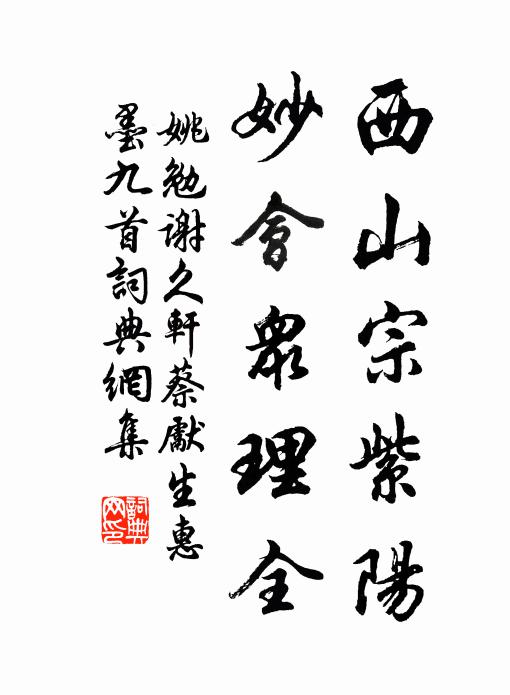 西山宗紫陽
妙會衆理全
姚勉謝久軒蔡獻生惠
墨九首詞典網集
詞典網印